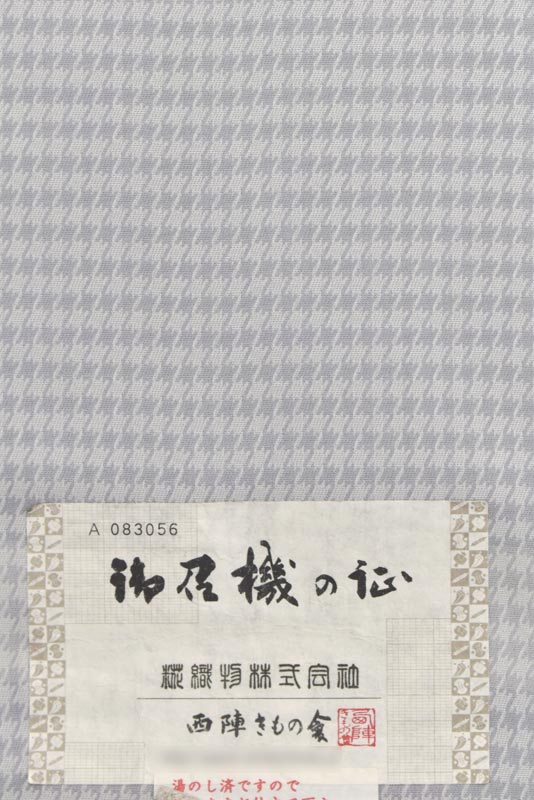 A 083056
御召機の証
織物株式会社
西陣きもの會
湯のし済ですので